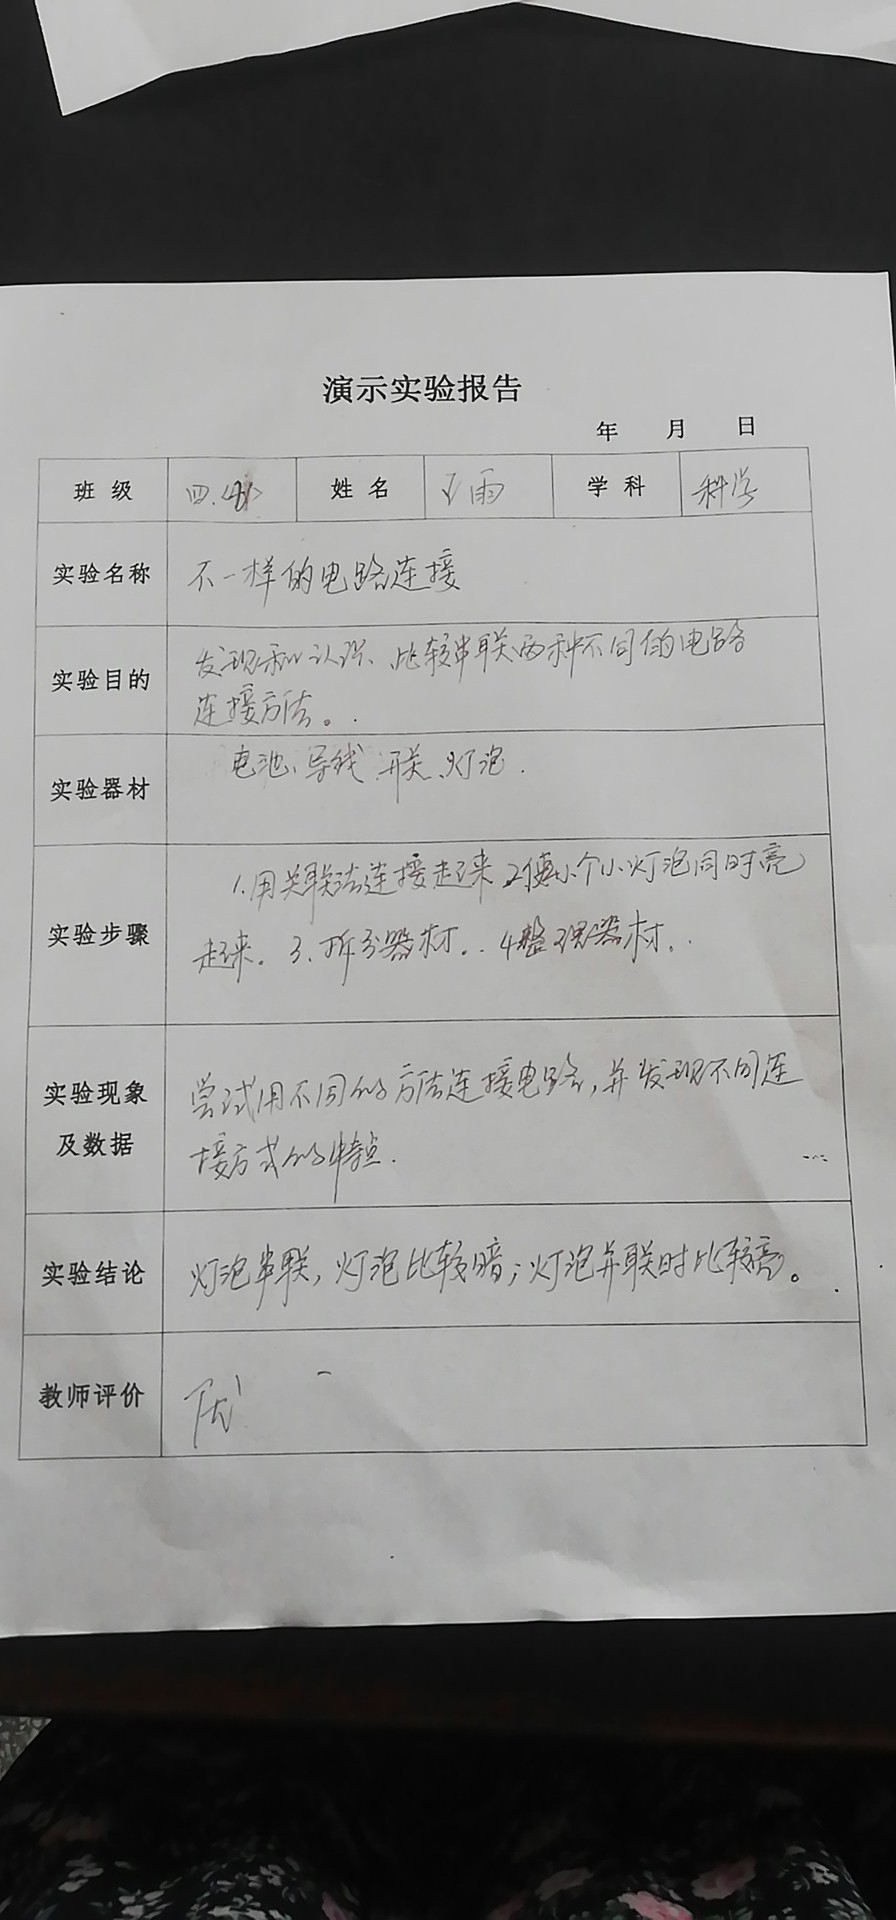 演示实验报告
年 月 日
班级 四. 姓名 王雨 学科 科学
实验名称 不一样的电路连接
实验目的 发现和认识、比较串联两种不同的电路
连接方法。.
实验器材 电池、导线 开关、灯泡.
实验步骤 1.用关联法连接起来 2使小个小灯泡同时亮
起来。3.拆分器材.. 4整理器材..
实验现象
及数据
尝试用不同的方法连接电路,并发现不同连
接方式的特点.
实验结论 灯泡串联,灯泡比较暗;灯泡并联时比较亮。
教师评价 优